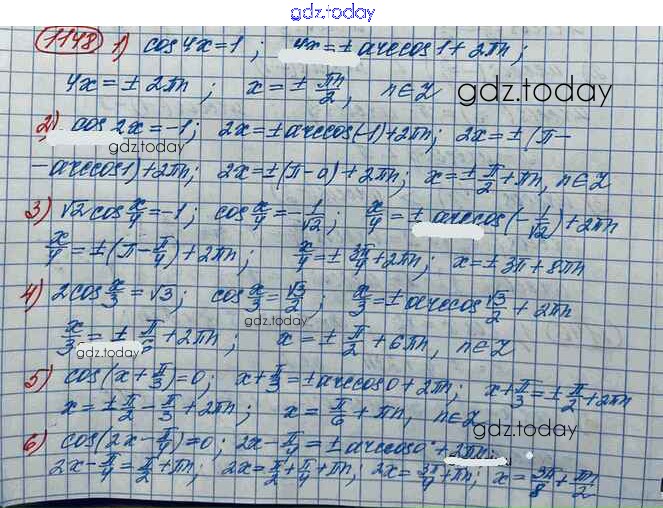 gdz.today
1148 1) cos4x=1; 4x=±arccos1+2πn;
4x=±2πn; x=±πn/2, n∈Z gdz.today
2) cos2x=-1; 2x=±arccos(-1)+2πn; 2x=±(π-
gdz.today
-arccos1)+2πn; 2x=±(π-0)+2πn; x=±π/2+πn, n∈Z
3) √2cos x/4=-1; cos x/4=-1/√2; x/4=±arccos(-1/√2)+2πn
x/4=±(π-π/4)+2πn; x/4=±3π/4+2πn; x=±3π+8πn
4) 2cos x/3=√3; cos x/3=√3/2; x/3=±arccos √3/2+2πn
gdz.today
x/3=±π/6+2πn; x=±π/2+6πn, n∈Z
gdz.today
5) cos(x+π/3)=0; x+π/3=±arccos0+2πn; x+π/3=±π/2+2πn
x=±π/2-π/3+2πn; x=π/6+πn, n∈Z
gdz.today
6) cos(2x-π/4)=0; 2x-π/4=±arccos0+2πn;
2x-π/4=π/2+πn; 2x=π/2+π/4+πn; 2x=3π/4+πn; x=3π/8+πn/2